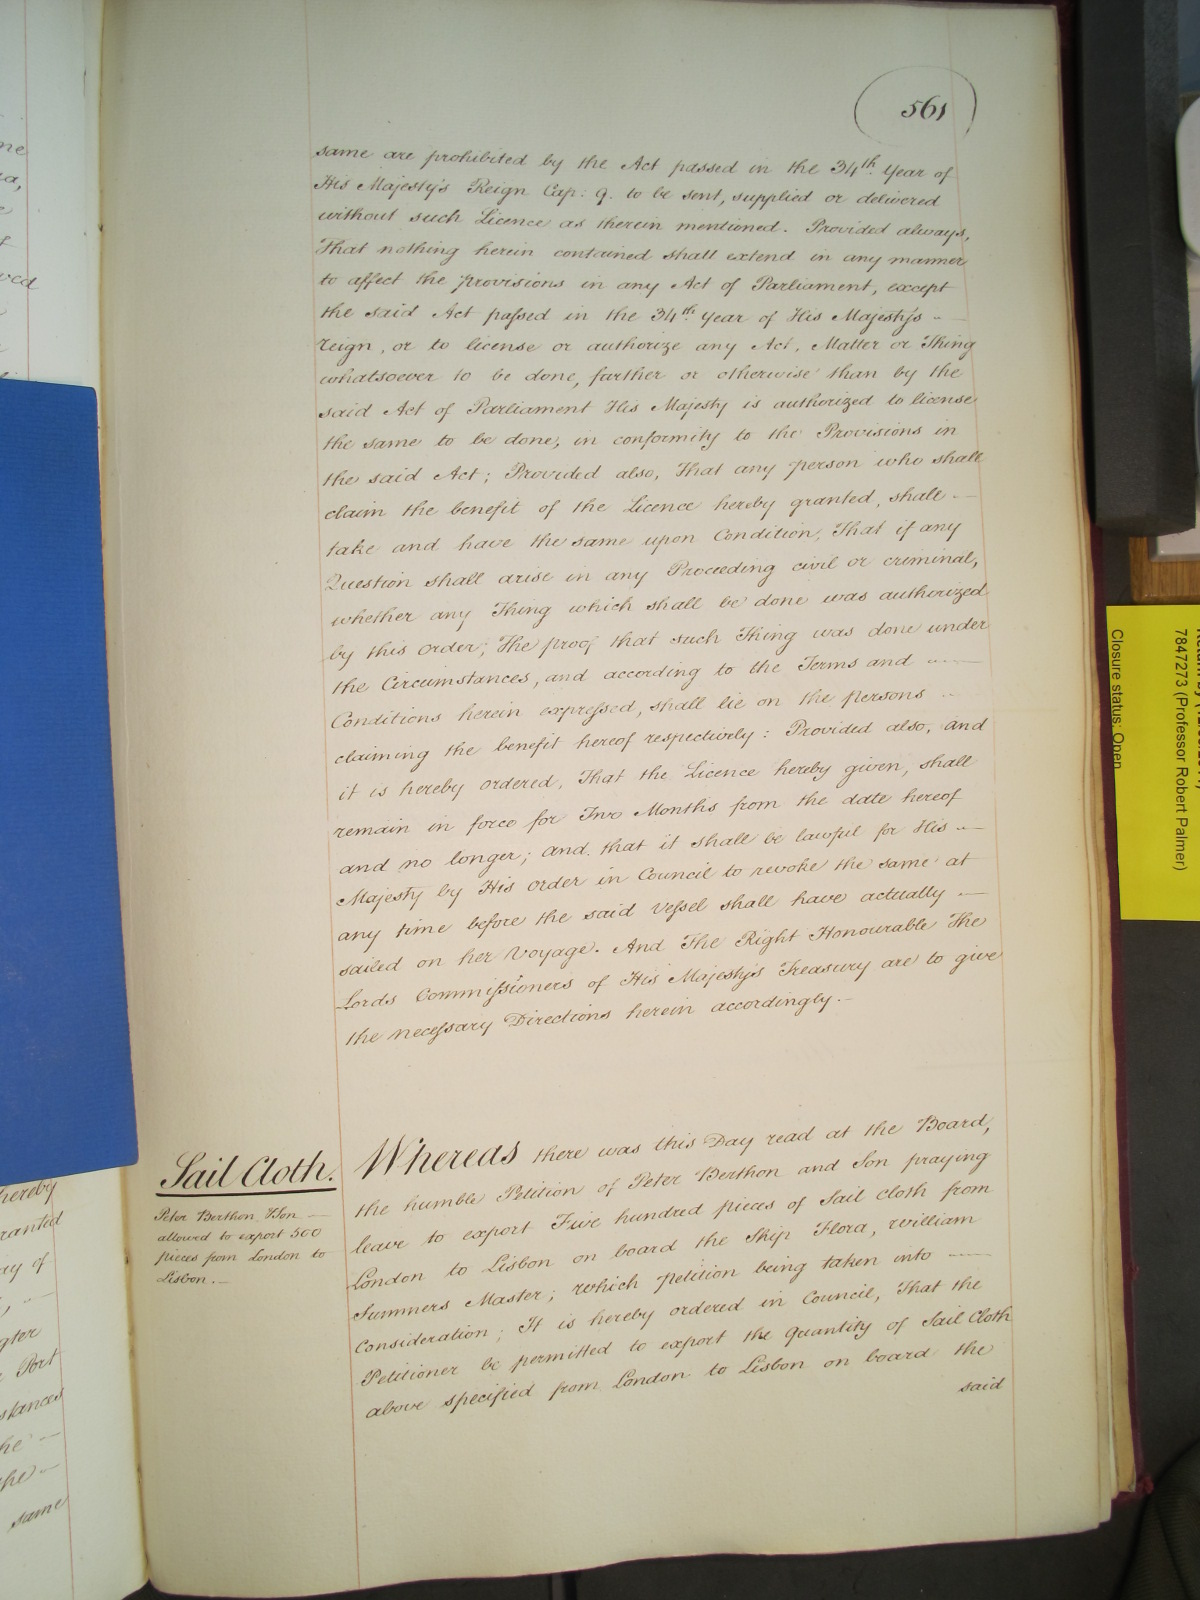 561
same are prohibited by the Act passed in the 34th Year of
His Majesty's Reign Cap: 9. to be sent, supplied or delivered
without such Licence as therein mentioned. Provided always,
That nothing herein contained shall extend in any manner
to affect the provisions in any Act of Parliament, except
the said Act passed in the 34th Year of His Majesty's
Reign, or to license or authorize any Act, Matter or Thing
whatsoever to be done, farther or otherwise than by the
said Act of Parliament His Majesty is authorized to license
the same to be done, in conformity to the Provisions in
the said Act; Provided also, That any person who shall
claim the benefit of the Licence hereby granted, shall
take and have the same upon Condition, That if any
Question shall arise in any Proceeding civil or criminal,
whether any Thing which shall be done was authorized
by this Order; The proof that such Thing was done under
the Circumstances, and according to the Terms and
Conditions herein expressed, shall lie on the persons
claiming the benefit hereof respectively: Provided also, and
it is hereby ordered, That the Licence hereby given, shall
remain in force for Two Months from the date hereof
and no longer; and that it shall be lawful for His
Majesty by His Order in Council to revoke the same at
any time before the said Vessel shall have actually
sailed on her Voyage. And The Right Honourable The
Lords Commissioners of His Majesty's Treasury are to give
the necessary Directions herein accordingly.
Sail Cloth.
Peter Berthon & Son
allowed to export 500
pieces from London to
Lisbon.
Whereas there was this Day read at the Board,
the humble Petition of Peter Berthon and Son praying
leave to export Five hundred pieces of Sail Cloth from
London to Lisbon on board the Ship Flora, William
Summers Master; which petition being taken into
Consideration; It is hereby ordered in Council, That the
Petitioner be permitted to export the Quantity of Sail Cloth
above specified from London to Lisbon on board the
said
hereby
ranted
ay of
gter
Port
stances
the
same
7847273 (Professor Robert Palmer)
Closure status: Open